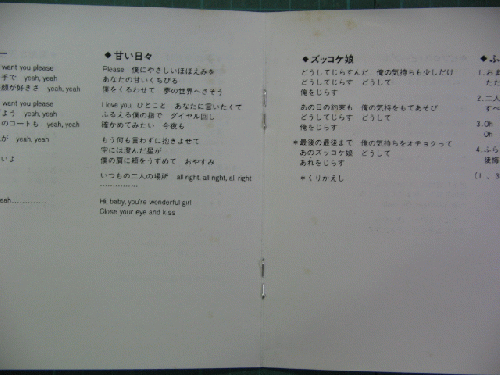 want you please
手で yeah, yeah
顔が好きさ yeah, yeah
want you please
yeah, yeah
のコートも yeah, yeah
が yeah, yeah
いよ
yeah…………
◆甘い日々
Please 僕にやさしいほほえみを
あなたの甘いくちびる
僕をくるわせて 夢の世界へさそう
I love you ひとこと あなたに言いたくて
ふるえる僕の指で ダイヤル回し
確かめてみたい 今夜も
もう何も言わずに抱きよせて
宇には澄んだ星が
僕の肩に頬をうずめて おやすみ
いつもの二人の場所 all right, all right, all right
……………
Hi baby, you're wonderful girl
Close your eye and kiss
◆ズッコケ娘
どうしてじらすんだ 俺の気持ちも少しだけ
どうしてじらすす どうして
俺をじらす
あの日の約束も 俺の気持をもてあそび
どうしてじらすす どうして
俺をじらす
*最後の最後まで 俺の気持をオチョクって
あのズッコケ娘 どうして
あれをじらす
*くりかえし
◆ふ
1.
2.二人
3.Oh
Oh
4.ふら
後悔
(1、3